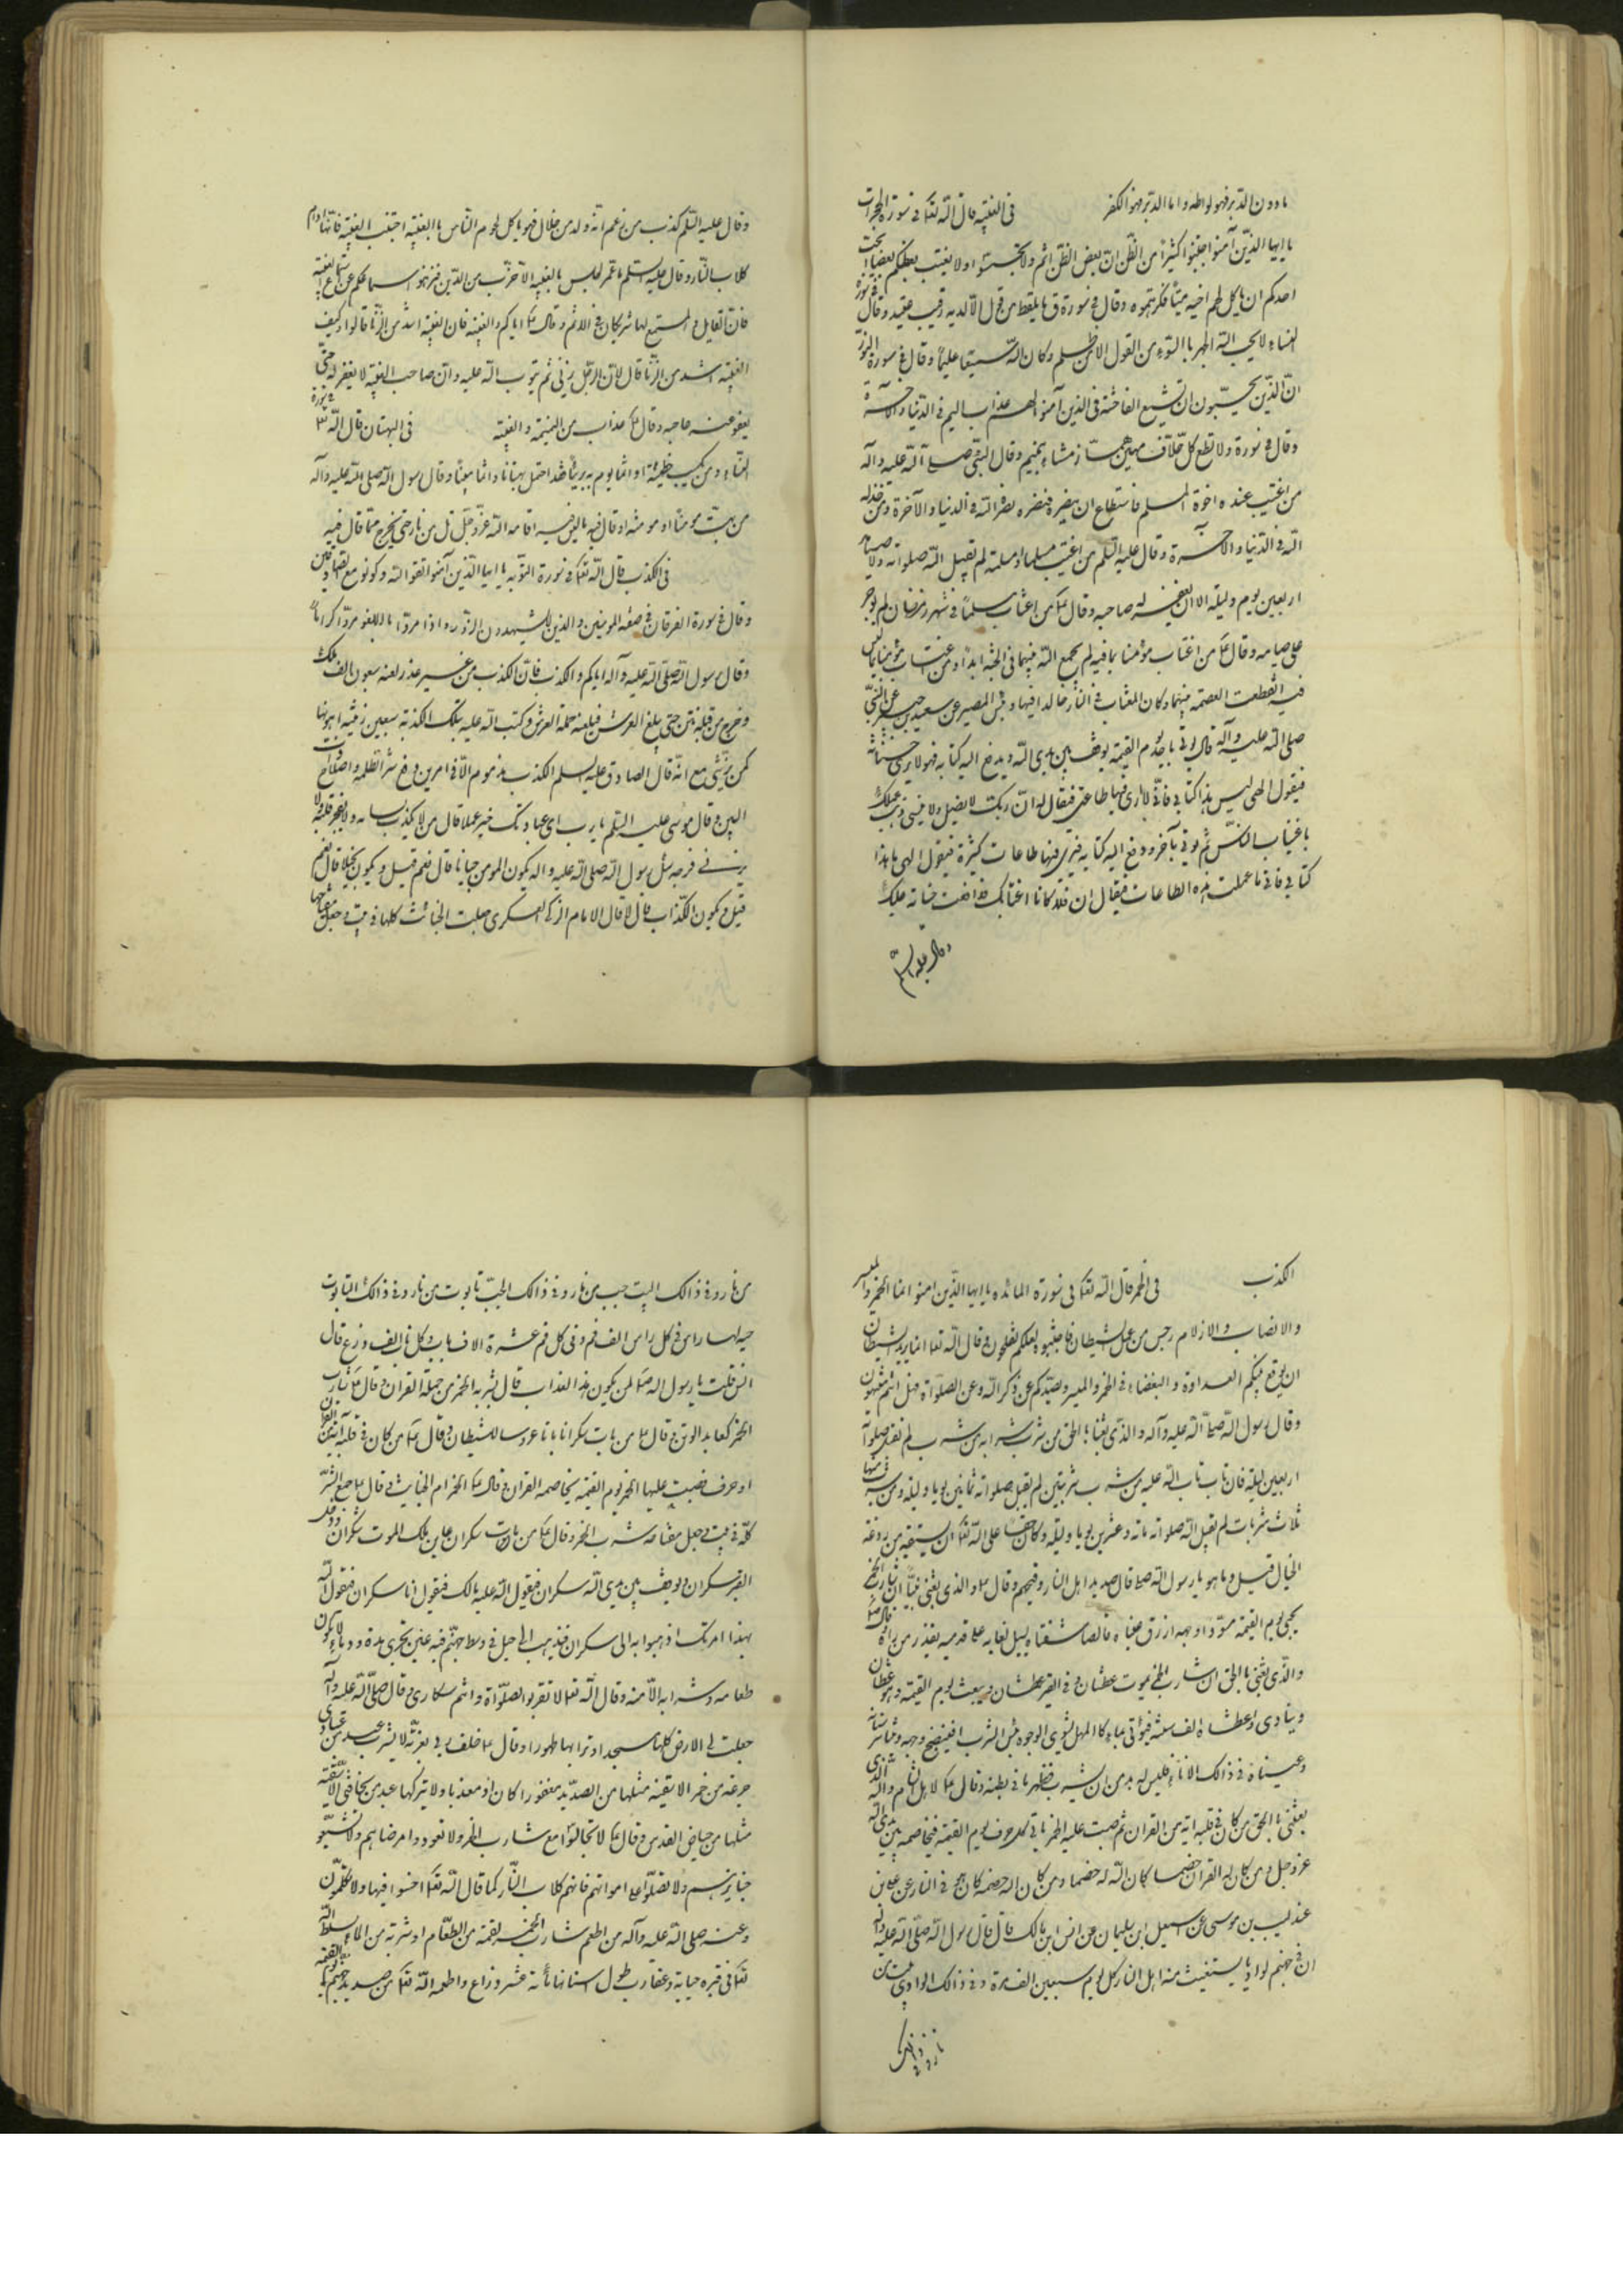 مادون الدبر فهو لواطه واما الدبر فهو الكفر في الغيبه قال الله تعا في سورة الحجرات
يا ايها الذين آمنوا اجتنبوا كثيرا من الظن ان بعض الظن اثم ولا تجسسوا ولا يغتب بعضكم بعضا ايحب
احدكم ان ياكل لحم اخيه ميتا فكرهتموه وقال في سورة ق ما يلفظ من قول الا لديه رقيب عتيد وقال في سورة
النساء لا يحب الله الجهر بالسوء من القول الا من ظلم وكان الله سميعا عليما وقال في سورة النور
ان الذين يحبون ان تشيع الفاحشة في الذين آمنوا لهم عذاب اليم في الدنيا والآخرة
وقال في سورة ولا تطع كل حلاف مهين هماز مشاء بنميم وقال النبي صلى الله عليه وآله
من اغتيب عنده اخوه المسلم فاستطاع ان ينصره فنصره نصره الله في الدنيا والآخرة ومن خذله
الله في الدنيا والآخرة وقال عليه السلم من اغتيب مسلما او مسلمة لم يقبل الله صلوته ولا صيامه
اربعين يوم وليله الا ان يغفر له صاحبه وقال ع من اغتاب مسلما في شهر رمضان لم يوجر
على صيامه وقال ع من اغتاب مؤمنا بما فيه لم يجمع الله بينهما في الجنه ابدا ومن اغتاب مؤمنا بما ليس
فيه انقطعت العصمه بينهما وكان المغتاب في النار خالدا فيها وبئس المصير عن سعيد بن جبير عن النبي
صلى الله عليه وآله قال يؤتى باحد يوم القيمة يوقف بين يدى الله ويدفع اليه كتابه فهو لا يرى حسناته
فيقول الهي ليس هذا كتابي فاني لا ارى فيها طاعتي فيقال له ان ربك لا يضل ولا ينسى ذهب عملك
باغتياب الناس ثم يؤتى بآخر ودفع اليه كتابه فيرى فيها طاعات كثيرة فيقول الهي ما هذا
كتابي فاني ما عملت هذه الطاعات فيقال ان فلانا اغتابك فدفعت حسناته عليك
وقال عليه السلم
وقال عليه السلم كذب من زعم انه ولد من حلال فهو ياكل لحوم الناس بالغيبه اجتنب الغيبه فانها ادام
كلاب النار وقال عليه السلم ما عمر مجلس بالغيبه الا خرب من الدين فنزهوا اسماعكم عن استماع الغيبه
فان القايل والمستمع لها شريكان في الاثم وقال ع اياكم والغيبه فان الغيبه اشد من الزنا قالوا وكيف
الغيبه اشد من الزنا قال لان الرجل يزني ثم يتوب الله عليه وان صاحب الغيبه لا يغفر له حتى
يعفو عنه صاحبه وقال ع عذاب من النميمة والغيبه في البهتان قال الله تع في سورة
النساء ومن يكسب خطيئة او اثما ثم يرم به بريئا فقد احتمل بهتانا واثما مبينا وقال رسول الله صلى الله عليه وآله
من بهت مومنا او مومنه او قال فيه ما ليس فيه اقامه الله عز وجل تل من نار حتى يخرج مما قال فيه
في الكذب قال الله تعا في سورة التوبه يا ايها الذين آمنوا اتقوا الله وكونوا مع الصادقين
وقال في سورة الفرقان في صفه المومنين والذين لا يشهدون الزور واذا مروا باللغو مروا كراما
وقال رسول الله صلى الله عليه وآله اياكم والكذب فان الكذب من غير عذر لعنه سبعون الف ملك
وخرج من قلبه نتن حتى يبلغ العرش فيلعنه حملة العرش وكتب الله عليه بتلك الكذبة سبعين زنيه اهونها
كمن يزني مع امه قال الصادق عليه السلم الكذب مذموم الا في امرين دفع شر الظلمه واصلاح ذات
البين وقال موسى عليه السلم يا رب اى عبادك خير عملا قال من لا يكذب لسانه ولا يفجر قلبه ولا
يزني فرجه سئل رسول الله صلى الله عليه واله يكون المومن جبانا قال نعم قيل ويكون بخيلا قال نعم
قيل ويكون الكذاب قال لا قال الامام الزكي العسكرى جعلت الخبائث كلها في بيت وجعل مفتاحها
الكذب في الخمر قال الله تعا في سورة المائده يا ايها الذين امنوا انما الخمر والميسر
والانصاب والازلام رجس من عمل الشيطان فاجتنبوه لعلكم تفلحون وقال الله تعا انما يريد الشيطان
ان يوقع بينكم العداوة والبغضاء في الخمر والميسر ويصدكم عن ذكر الله وعن الصلوة فهل انتم منتهون
وقال رسول الله صلى الله عليه وآله والذى بعثنا بالحق من شرب شرابه من شرب لم تقبل صلواته
اربعين ليلة فان تاب تاب الله عليه ومن شرب شربتين لم يقبل صلواته ثمانين يوما وليله ومن شرب منها
ثلاث شربات لم يقبل الله صلواته مائه وعشرين يوما وليله وكان حقا على الله تعا ان يسقيه من ردغة
الخبال قيل وما هو يا رسول الله ص قال صديد اهل النار وقيحهم وقال ع والذى بعثني نبيا ان شارب الخمر
يجى يوم القيمة مسودا وجهه ازرق عيناه قالصا شفتاه يسيل لعابه على قدميه يقذر من يراه قال ع
والذى بعثني بالحق ان شارب الخمر يموت عطشان وفي القبر عطشان ويبعث يوم القيمه وهو عطشان
وينادى واعطشاه الف سنة فيؤتى بماء كالمهل يشوى الوجوه بئس الشراب فينضج وجهه ويتناثر اسنانه
وعيناه في ذلك الاناء فليس له بد من ان يشرب فيظهر ما في بطنه وقال ع لاهل الشام والله الذى
بعثني بالحق من كان في قلبه ايه من القران ثم صب عليه الخمر ياتي كل حرف يوم القيمة فيخاصمه بين يدى الله
عز وجل ومن كان له القران خصما كان الله له خصما ومن كان الله خصمه كان هو في النار عن على بن
عندليب بن موسى عن اسمعيل ابن سليمان عن انس ابن مالك قال قال رسول الله صلى الله عليه وآله
ان في جهنم لواديا يستغيث منه اهل النار كل يوم سبعين الف مرة وفي ذالك الوادى بيت من
نار وفي ذالك
من نار وفي ذالك البيت جب من نار وفي ذالك الجب تابوت من نار وفي ذالك التابوت
حيه لها راس في كل راس الف فم وفي كل فم عشرة الاف ناب وكل ناب الف ذراع قال
انس قلت يا رسول الله ص لمن يكون هذا العذاب قال لشربه الخمر من حملة القران وقال ع شارب
الخمر كعابد الوثن وقال ع من بات سكرانا بات عروسا للشيطان وقال ع من كان في قلبه آية من القران
او حرف فصبت عليها الخمر يوم القيمه يخاصمه القران وقال ع الخمر ام الخبايث وقال ع جمع الشر
كله في بيت وجعل مفتاحه شرب الخمر وقال ع من مات سكران عاين ملك الموت سكران ودخل
القبر سكران ويوقف بين يدى الله سكران فيقول الله عليه مالك فيقول انا سكران فيقول الله
بهذا امرتك اذهبوا به الى سكران فيذهب الى جبل في وسط جهنم فيه عين تجرى مدة ودماء لا يكون
طعامه وشرابه الا منه وقال الله تعا لا تقربوا الصلوة وانتم سكارى وقال صلى الله عليه وآله
جعلت لى الارض كلها مسجدا وترابها طهورا وقال ع حلف ربي بعزته لا يشرب عبد من عبادى
جرعه من خمر الا سقيته مثلها من الصديد مغفورا كان او معذبا ولا يتركها عبد من مخافتى الا سقيته
مثلها من حياض القدس وقال ع لا تجالسوا مع شارب الخمر ولا تعودوا مرضاهم ولا تشيعوا
جنايزهم ولا تصلوا على امواتهم فانهم كلاب النار كما قال الله تعا اخسوا فيها ولا تكلمون
وعنه صلى الله عليه وآله من اطعم شارب الخمر لقمة من الطعام او شربة من الماء سلط الله
تعا في قبره حياة وعقارب طول اسنانها مأئة عشر ذراع واطعمه الله تعا من صديد جهنم يوم القيمه